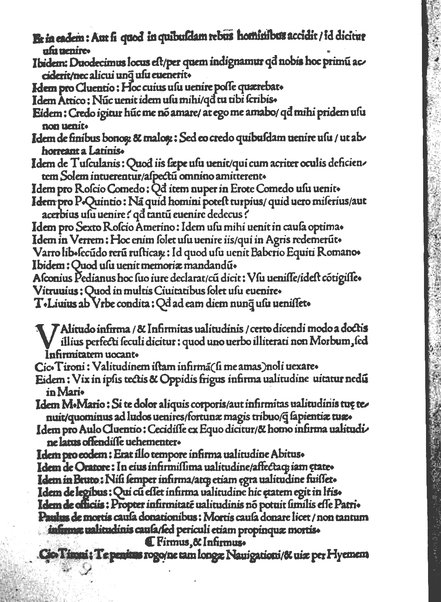 Et in eadem: Aut si quod in quibusdam rebus hominibus accidit/ id dicitur
usu uenire.
Ibidem: Duodecimus locus est/per quem indignamur qđ nobis hoc primũ ac-
ciderit/nec alicui unq̃ usu euenerit.
Idem pro Cluentio: Hoc cuius usu uenire posse quærebat.
Idem Attico: Nũc uenit idem usu mihi/qđ tu tibi scribis.
Eidem: Credo igitur hũc me nõ amare/at ego me amabo/ qđ mihi pridem usu
non uenit.
Idem de finibus bonoꝝ & maloꝝ: Sed eo credo quibusdam uenire usu / ut ab-
horreant a Latinis.
Idem de Tusculanis: Quod iis sæpe usu uenit/qui cum acriter oculis deficien-
tem Solem intuerentur/aspectũ omnino amitterent.
Idem pro Roscio Comedo: Qđ item nuper in Erote Comedo usu uenit.
Idem pro P.Quintio: Nã quid homini potest turpius/ quid uero miserius/aut
acerbius usu uenire? qđ tantũ euenire dedecus?
Idem pro Sexto Roscio Amerino: Idem usu mihi uenit in causa optima.
Idem in Verrem: Hoc enim solet usu uenire iis/qui in Agris redemerũt.
Varro lib.secũdo rerũ rusticaꝝ: Id quod usu uenit Baberio Equiti Romano.
Ibidem: Quod usu uenit memoriæ mandandũ.
Asconius Pedianus hoc suo iure declarat/cũ dicit: Vsu uenisse/idest cõtigisse.
Vitruuius: Quod in multis Ciuitatibus solet usu euenire.
T.Liuius ab Vrbe condita: Qđ ad eam diem nunq̃ usu uenisset.
VAlitudo infirma /& Infirmitas ualitudinis /certo dicendi modo a doctis
illius perfecti seculi dicitur: quod uno uerbo illiterati non Morbum, sed
Infirmitatem uocant.
Cic.Tironi: Valitudinem istam infirmã(si me amas)noli uexare.
Eidem: Vix in ipsis tectis & Oppidis frigus infirma ualitudine uitatur nedũ
in Mari.
Idem M.Mario: Si te dolor aliquis corporis/aut infirmitas ualitudinis tuę te-
nuit/quominus ad ludos uenires/fortunæ magis tribuo/q̃ sapientiæ tuæ.
Idem pro Aulo Cluentio: Cecidisse ex Equo dicitur/& homo infirma ualitudi-
ne latus offendisse uehementer.
Idem pro eodem: Erat illo tempore infirma ualitudine Abitus.
Idem de Oratore: In eius infirmissima ualitudine/affectaq; iam ętate.
Idem in Bruto: Nisi semper infirma/atq; etiam ęgra ualitudine fuisset.
Idem de legibus: Qui cũ esset infirma ualitudine hic ętatem egit in Istis.
Idem de officiis: Propter infirmitatẽ ualitudinis nõ potuit similis esse Patri.
Paulus de mortis causa donationibus: Mortis causa donare licet / non tantum
infirmæ ualitudinis causa/sed periculi etiam propinquæ mortis.
¶ Firmus,& Infirmus.
Cic.Tironi: Te penitus rogo/ne tam longæ Nauigationi/& uiæ per Hyemem